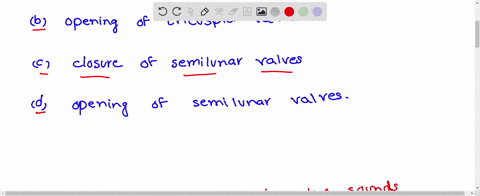 (b) opening of
(c) closure of semilunar valves
(d) opening of semilunar valves.
sounds